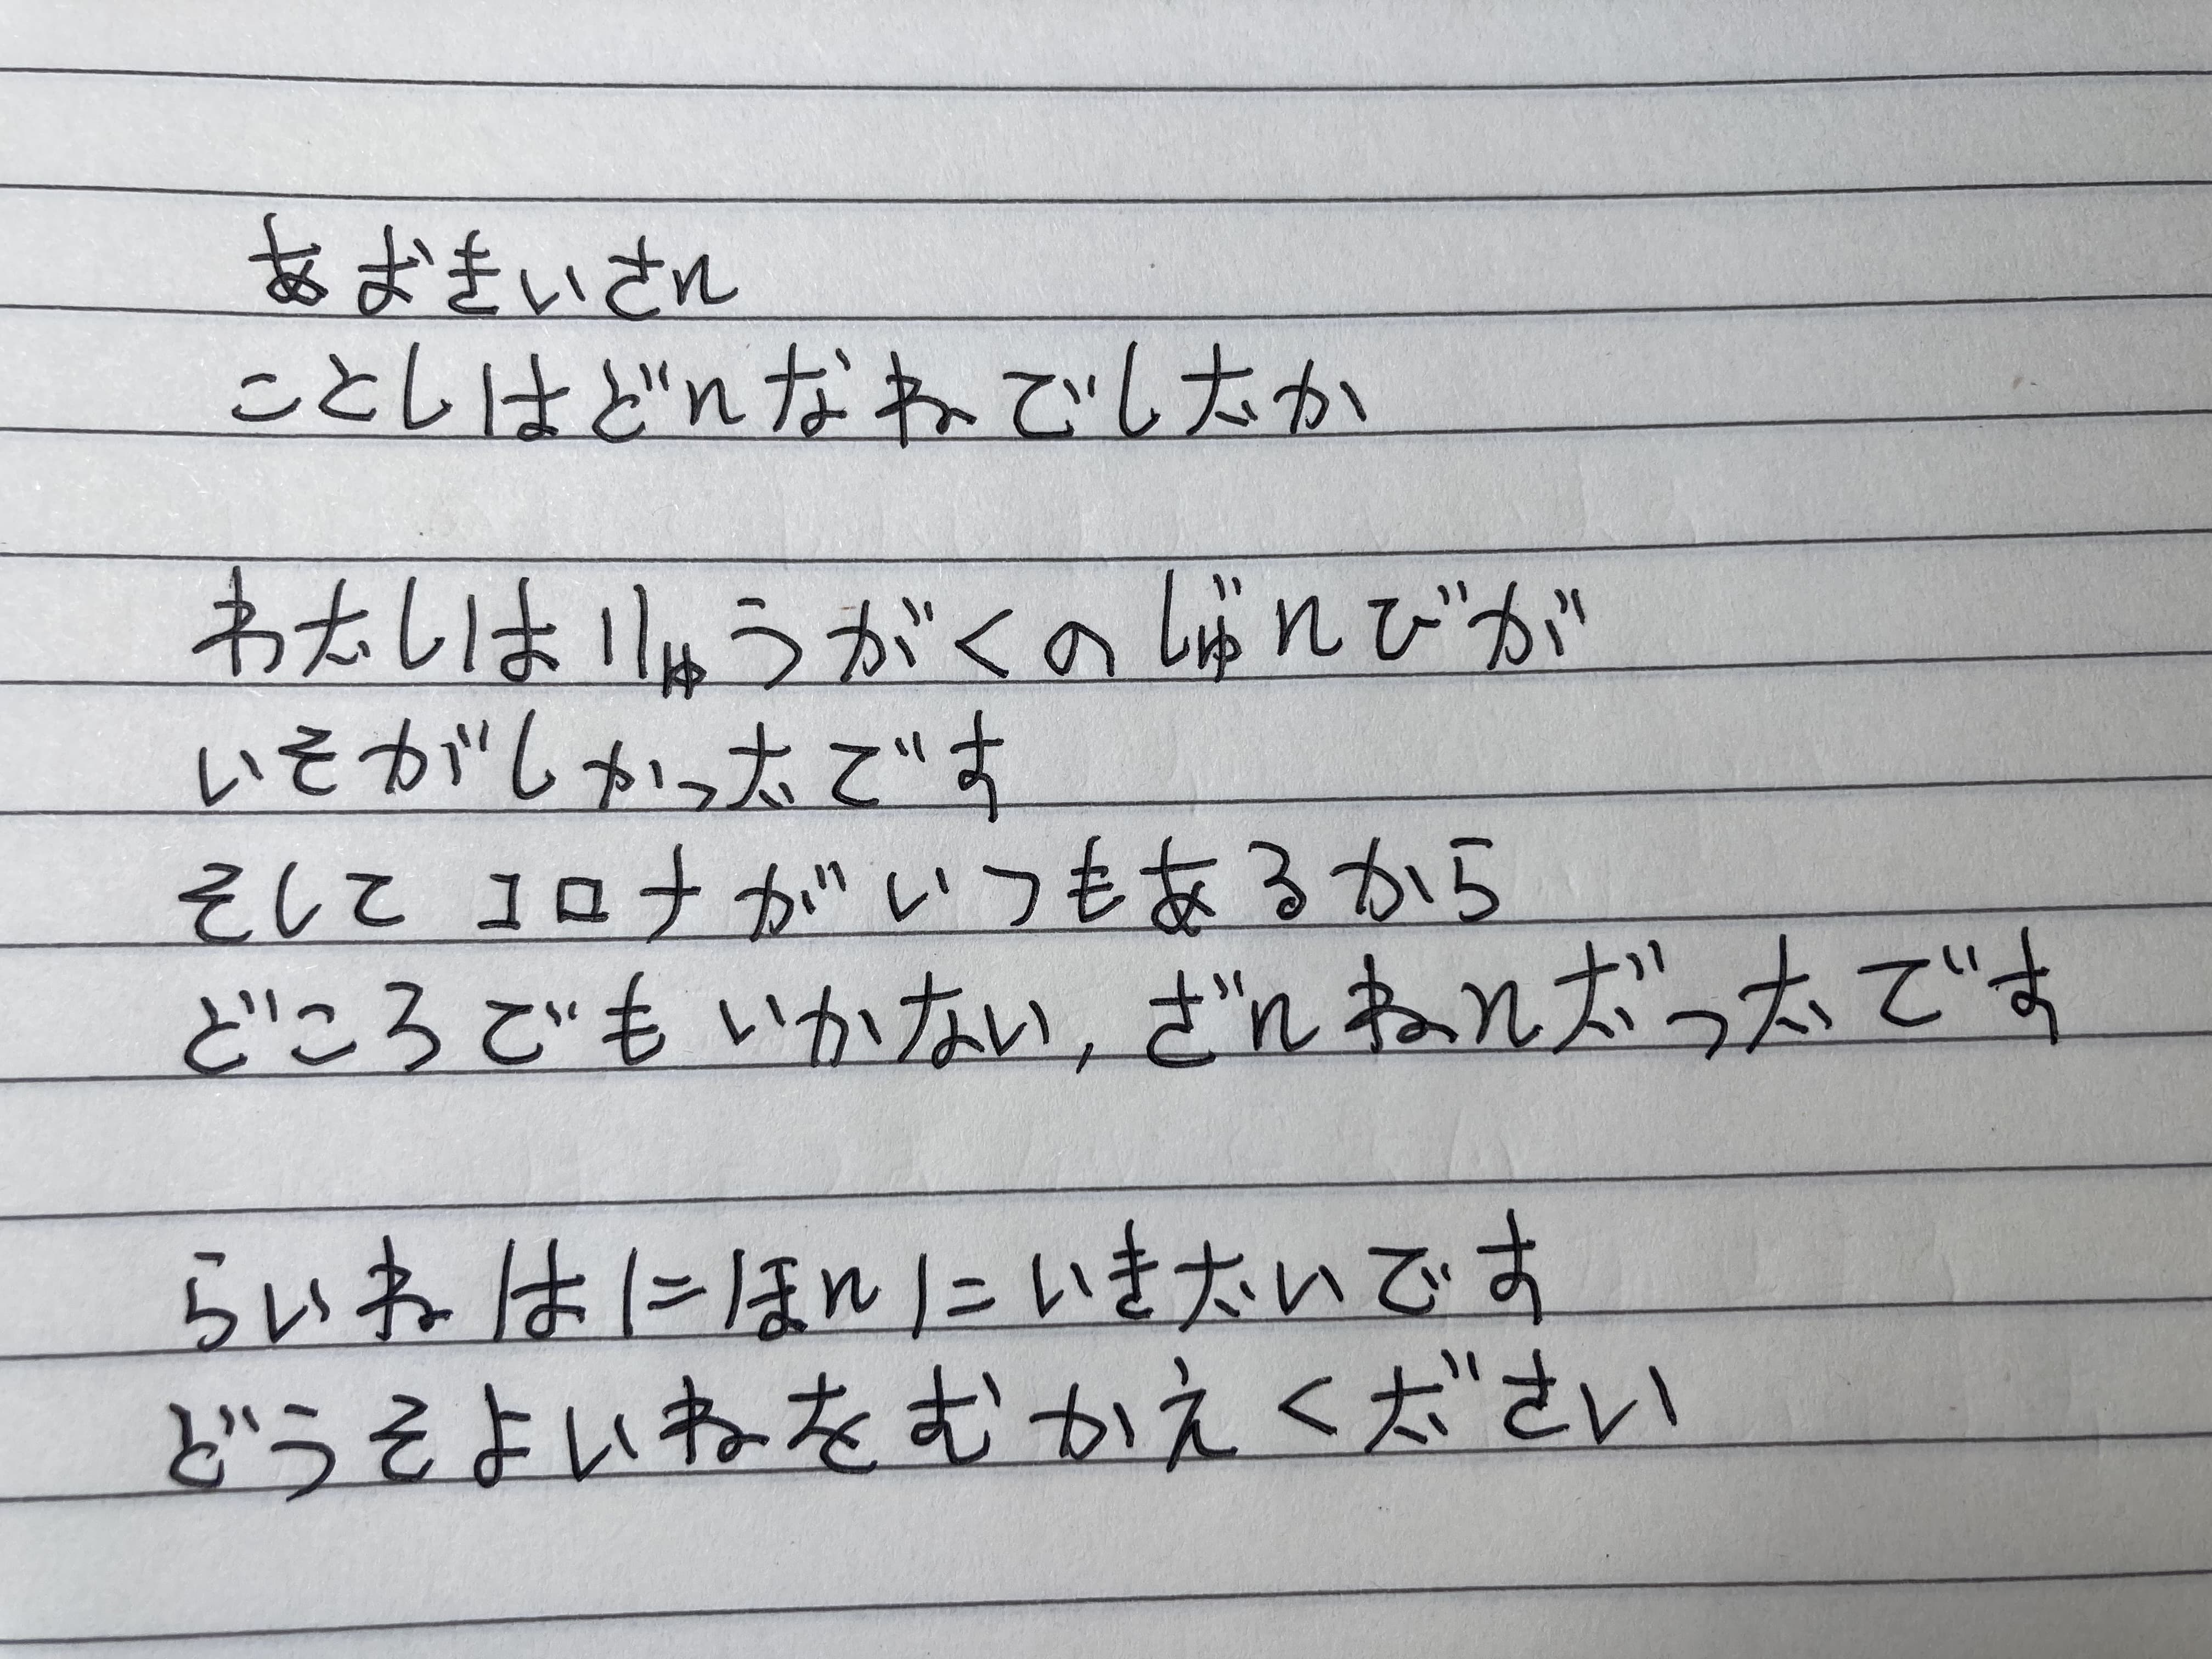 あおきいさん
ことしはどんなねでしたか
わたしはりゅうがくのじゅんびが
いそがしかったです
そしてコロナがいつもあるから
どころでもいかない, ざんねんだったです
らいねはにほんにいきたいです
どうそよいねをむかえください